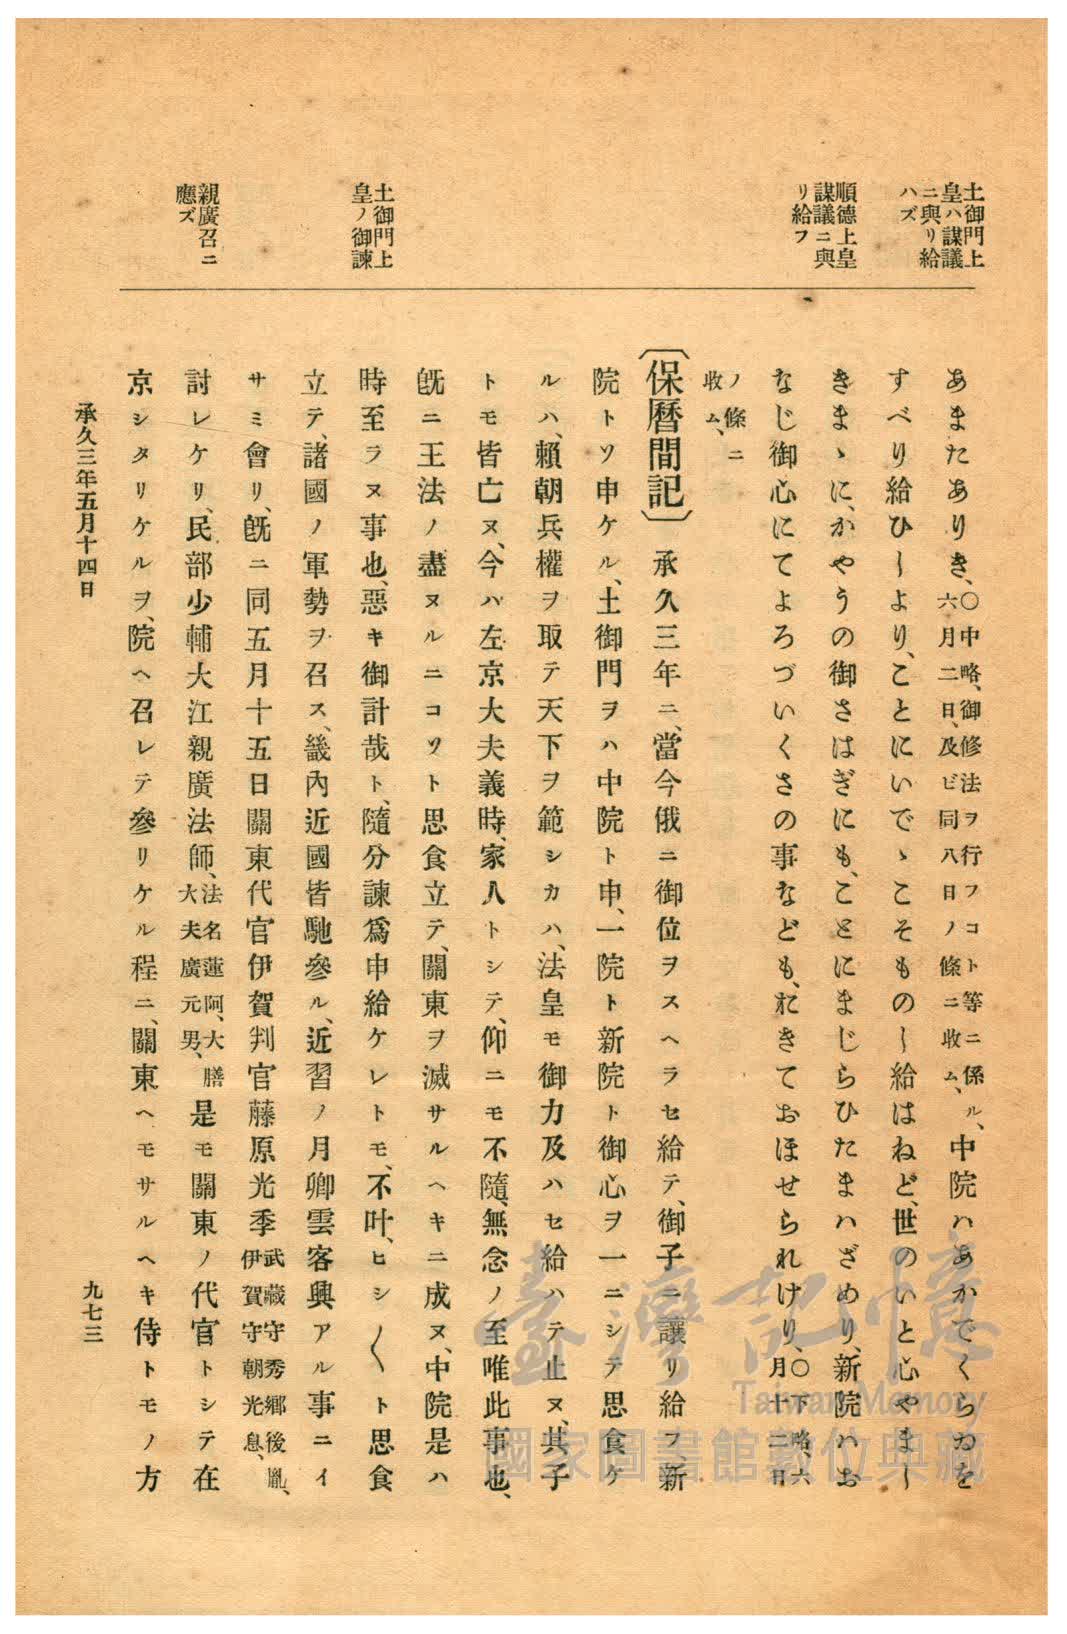 土御門上
皇ハ謀議
ニ與リ給
ハズ
順德上皇
謀議ニ與
リ給フ
土御門上
皇ノ御諫
親廣召ニ
應ズ
あまたありき、〇中略、御修法ヲ行フコト等ニ係ル、六月二日、及ビ同八日ノ條ニ收ム、中院ハあかでくらゐを
すべり給ひしより、ことにいでゝこそものし給はねど、世のいと心やまし
きまゝに、かやうの御さはぎにも、ことにまじらひたまハざめり、新院ハお
なじ御心にてよろづいくさの事なども、おきておほせられけり、〇下略、六月十二日
ノ條ニ
收ム、
〔保曆間記〕 承久三年ニ、當今俄ニ御位ヲスヘラセ給テ、御子ニ讓リ給フ、新
院トソ申ケル、土御門ヲハ中院ト申、一院ト新院ト御心ヲ一ニシテ思食ケ
ルハ、賴朝兵權ヲ取テ天下ヲ範シカハ、法皇モ御力及ハセ給ハテ止ヌ、其子
トモ皆亡ヌ、今ハ左京大夫義時、家人トシテ、仰ニモ不隨、無念ノ至唯此事也、
旣ニ王法ノ盡ヌルニコソト思食立テ、關東ヲ滅サルヘキニ成ヌ、中院是ハ
時至ラヌ事也、惡キ御計哉ト、隨分諫爲申給ケレトモ、不叶、ヒシ〱ト思食
立テ、諸國ノ軍勢ヲ召ス、畿內近國皆馳參ル、近習ノ月卿雲客興アル事ニイ
サミ會リ、旣ニ同五月十五日關東代官伊賀判官藤原光季武藏守秀鄕後胤、伊賀守朝光息、
討レケリ、民部少輔大江親廣法師、法名蓮阿、大膳大夫廣元男、是モ關東ノ代官トシテ在
京シタリケルヲ、院ヘ召レテ參リケル程ニ、關東ヘモサルヘキ侍トモノ方
承久三年五月十四日
九七三
臺灣記憶
Taiwan Memory
國家圖書館數位典藏